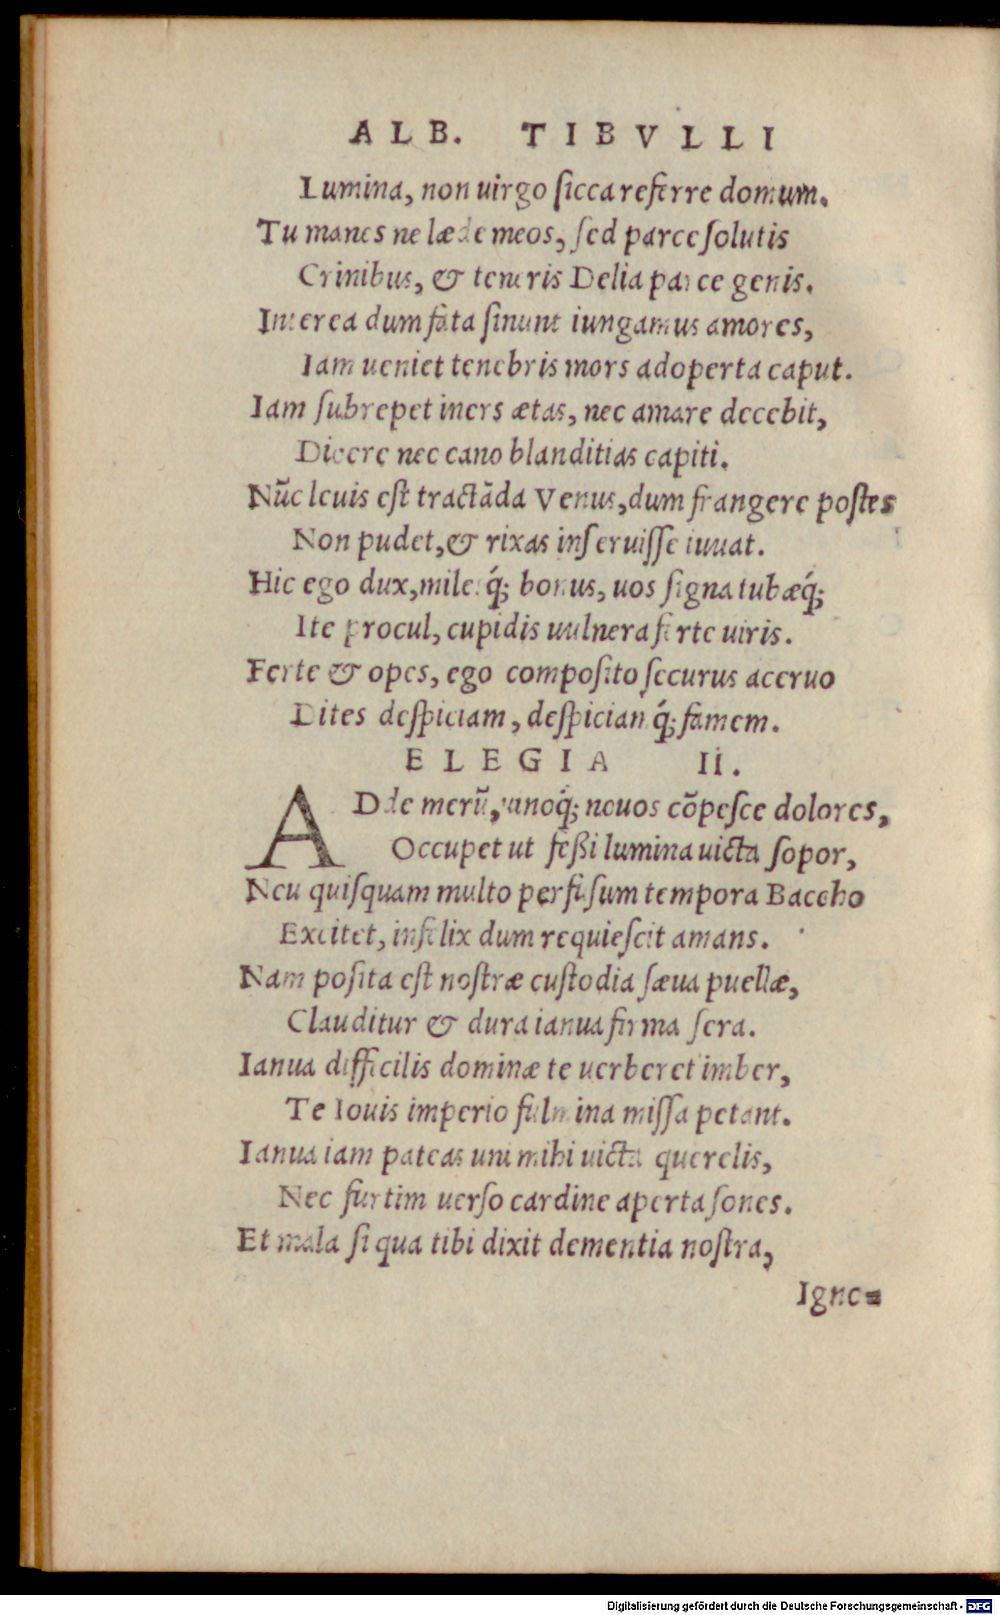 ALB. TIBVLLI
Lumina, non uirgo ſicca referre domum.
Tu manes ne læde meos, ſed parce ſolutis
Crinibus, & teneris Delia parce genis.
Interea dum fata ſinunt iungamus amores,
Iam ueniet tenebris mors adoperta caput.
Iam ſubrepet iners ætas, nec amare decebit,
Dicere nec cano blanditias capiti.
Nūc leuis eſt tractāda Venus, dum frangere poſtes
Non pudet, & rixas inſeruiſſe iuuat.
Hic ego dux, mileſq́; bonus, uos ſigna tubæq́;
Ite procul, cupidis uulnera ferte uiris.
Ferte & opes, ego compoſito ſecurus aceruo
Dites deſpiciam, deſpiciamq́; famem.
ELEGIA II.
ADde merū, uinoq́; nouos cōpeſce dolores,
Occupet ut feßi lumina uicta ſopor,
Neu quiſquam multo perfuſum tempora Baccho
Excitet, infelix dum requieſcit amans.
Nam poſita eſt noſtræ cuſtodia ſæua puellæ,
Clauditur & dura ianua firma ſera.
Ianua difficilis dominæ te uerberet imber,
Te Iouis imperio fulmina miſſa petant.
Ianua iam pateas uni mihi uicta querelis,
Nec furtim uerſo cardine aperta ſones.
Et mala ſi qua tibi dixit dementia noſtra,
Igno-
Digitalisierung gefördert durch die Deutsche Forschungsgemeinschaft - DFG